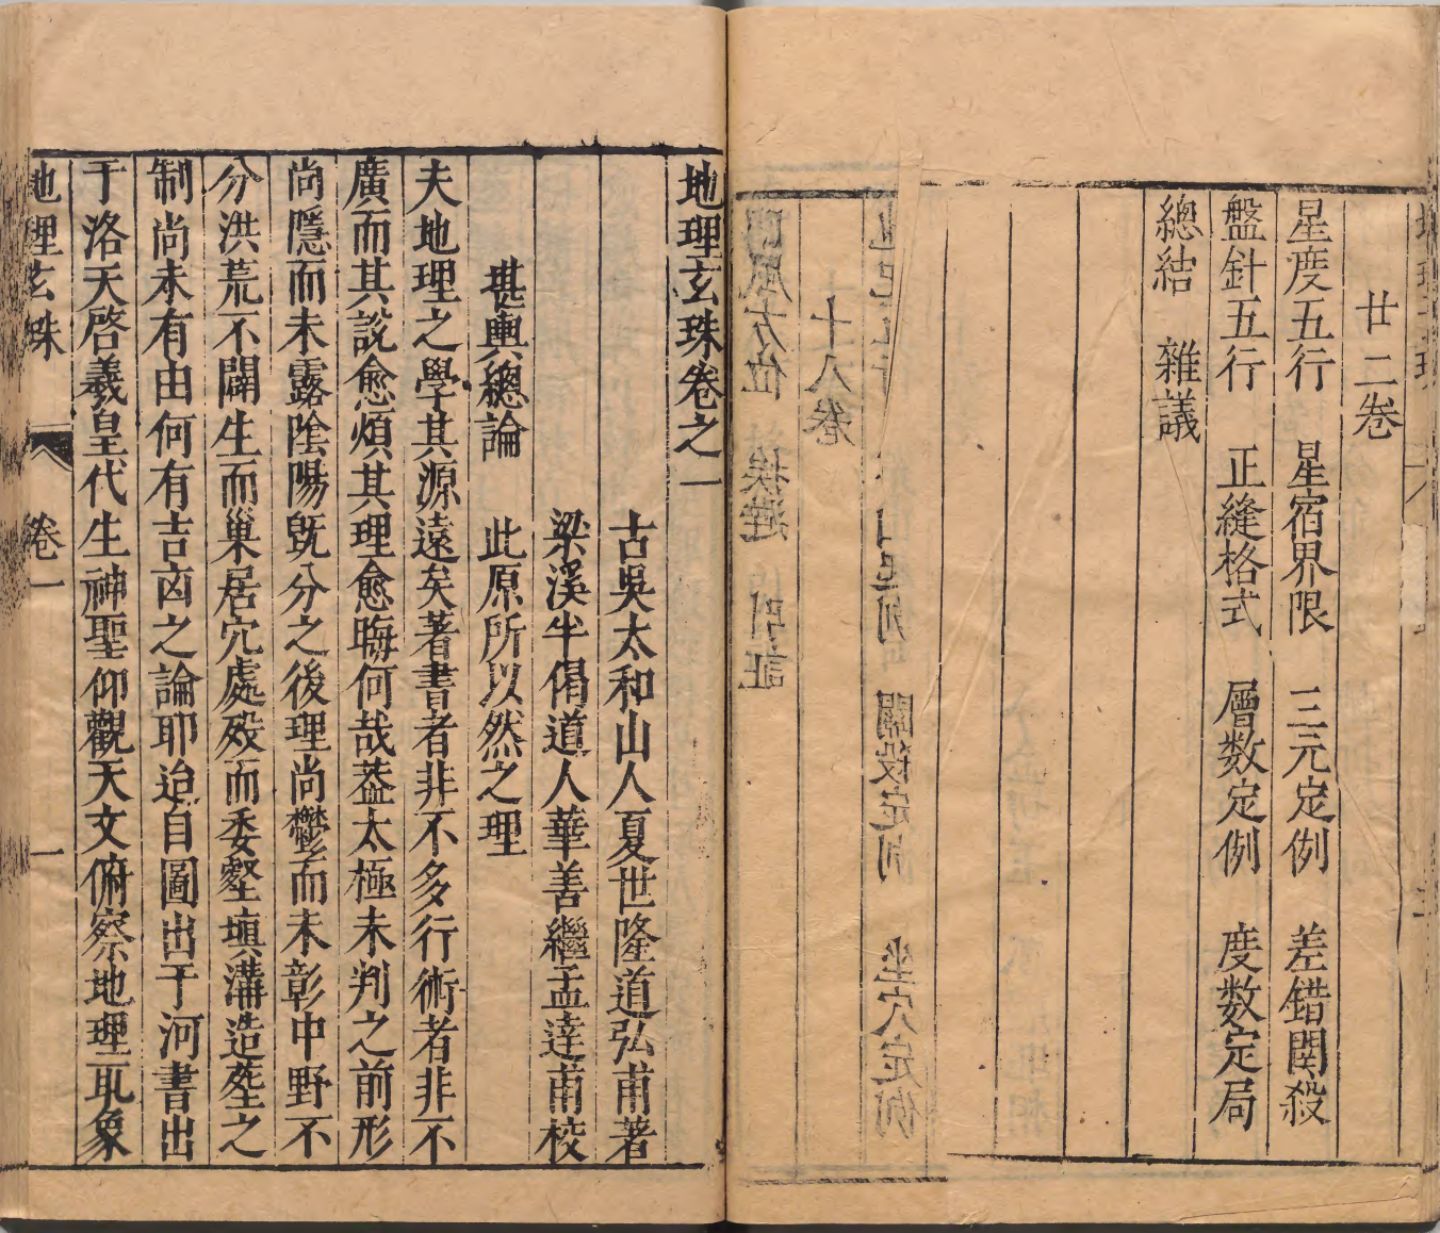 廿二卷
星度五行 星宿界限 三元定例 差錯関殺
盤針五行 正縫格式 層数定例 度数定局
總結 雜議
地理玄珠卷之一
古吳太和山人夏世隆道弘甫著
梁溪半偈道人華善繼孟達甫校
堪輿總論 此原所以然之理
夫地理之學其源遠矣著書者非不多行術者非不
廣而其說愈煩其理愈晦何哉葢太極未判之前形
尚隱而未露陰陽旣分之後理尚欝而未彰中野不
分洪荒不闢生而巢居穴處殁而委壑塡溝造塟之
制尚未有由何有吉凶之論耶迨自圖出于河書出
于洛天啓羲皇代生神聖仰觀天文俯察地理取象
地理玄珠 卷一 一